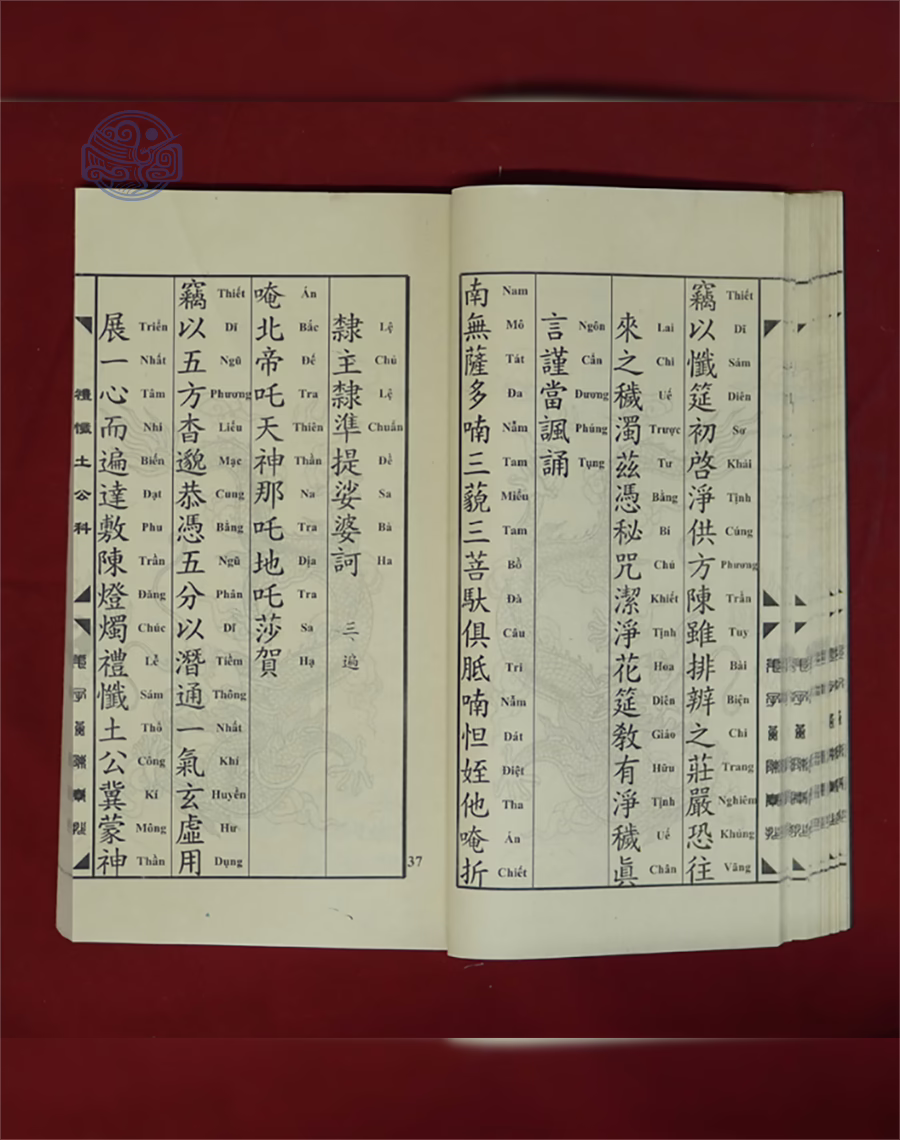 竊以懺筵初啓淨供方陳雖排辨之莊嚴恐往
Thiết Dĩ Sám Diên Sơ Khải Tịnh Cúng Phương Trần Tuy Bài Biện Chi Trang Nghiêm Khủng Vãng
來之穢濁茲憑秘咒潔淨花筵敎有淨穢眞
Lai Chi Uế Trược Tư Bằng Bí Chú Khiết Tịnh Hoa Diên Giáo Hữu Tịnh Uế Chân
言謹當諷誦
Ngôn Cẩn Đương Phúng Tụng
南無薩多喃三藐三菩馱俱胝喃怛姪他唵折
Nam Mô Tát Đa Nẵm Tam Miểu Tam Bồ Đà Câu Tri Nẵm Dát Điệt Tha Án Chiết
隸主隸準提娑婆訶 三、遍
Lệ Chủ Lệ Chuẩn Đề Sa Bà Ha
唵北帝吒天神那吒地吒莎賀
Án Bắc Đế Tra Thiên Thần Na Tra Địa Tra Sa Hạ
竊以五方杳邈恭憑五分以潛通一氣玄虛用
Thiết Dĩ Ngũ Phương Liểu Mạc Cung Bằng Ngũ Phân Dĩ Tiềm Thông Nhất Khí Huyền Hư Dụng
展一心而遍達敷陳燈燭禮懺土公冀蒙神
Triển Nhất Tâm Nhi Biến Đạt Phu Trần Đăng Chúc Lễ Sám Thổ Công Kí Mông Thần
禮懺土公科
37